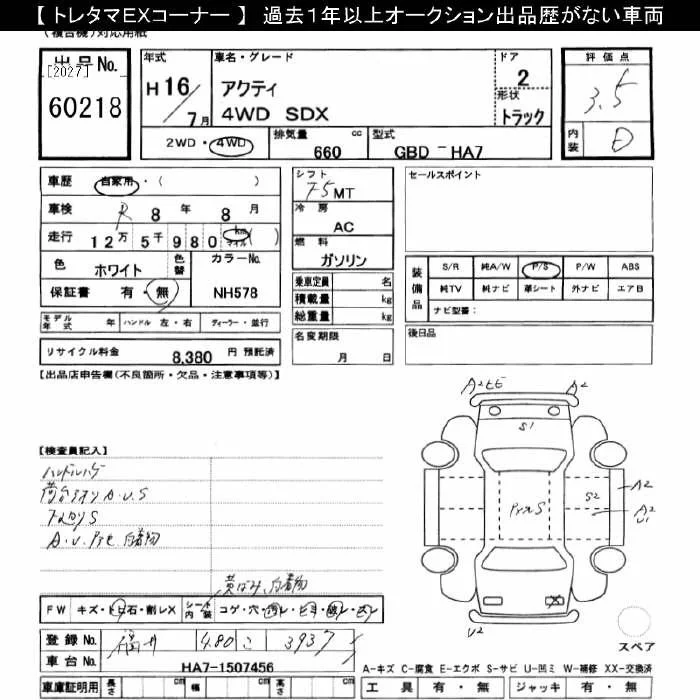 【 トレタマEXコーナー 】 過去1年以上オークション出品歴がない車両
(複合機)対応用紙
出品No.
[2027]
60218
年式
H 16 / 7 月
車名・グレード
アクティ
4WD SDX
ドア
2
形状
トラック
評価点
3.5
内装
D
2WD・4WD
排気量 cc
660
型式
GBD - HA7
車歴 自家用・( )
車検 R 8 年 8 月
走行 12 万 5 千 980 km マイル ( )
色 ホワイト 色替 カラーNo.
保証書 有・無 NH578
モデル年式 年 ハンドル 左・右 ディーラー・並行
リサイクル料金 8,380 円 預託済
シフト
F5 MT
冷房
AC
燃料
ガソリン
乗車定員 名
積載量 kg
総重量 kg
名変期限
月 日
セールスポイント
装備品
S/R 純A/W P/S P/W ABS
純TV 純ナビ 革シート 外ナビ エアB
ナビ型番:
後日品
【出品店申告欄(不良箇所・欠品・注意事項等)】
【検査員記入】
ハンドルハゲ
荷台 A.U.S
S
A.U. 付着物
黄ばみ 付着物
FW キズ・トビ石・削レX シート内装 コゲ・穴・切レ・ヒビ・破レ・スレ
登録No. 福井 480 こ 3937
車台No. HA7-1507456
車庫証明用 長さ cm 幅 cm 高さ cm
A2 A2
S1
S2
A2
A2
U1
U2
スペア
A-キズ C-腐食 E-エクボ S-サビ U-凹ミ W-補修 XX-交換済
工具 有・無 ジャッキ 有・無